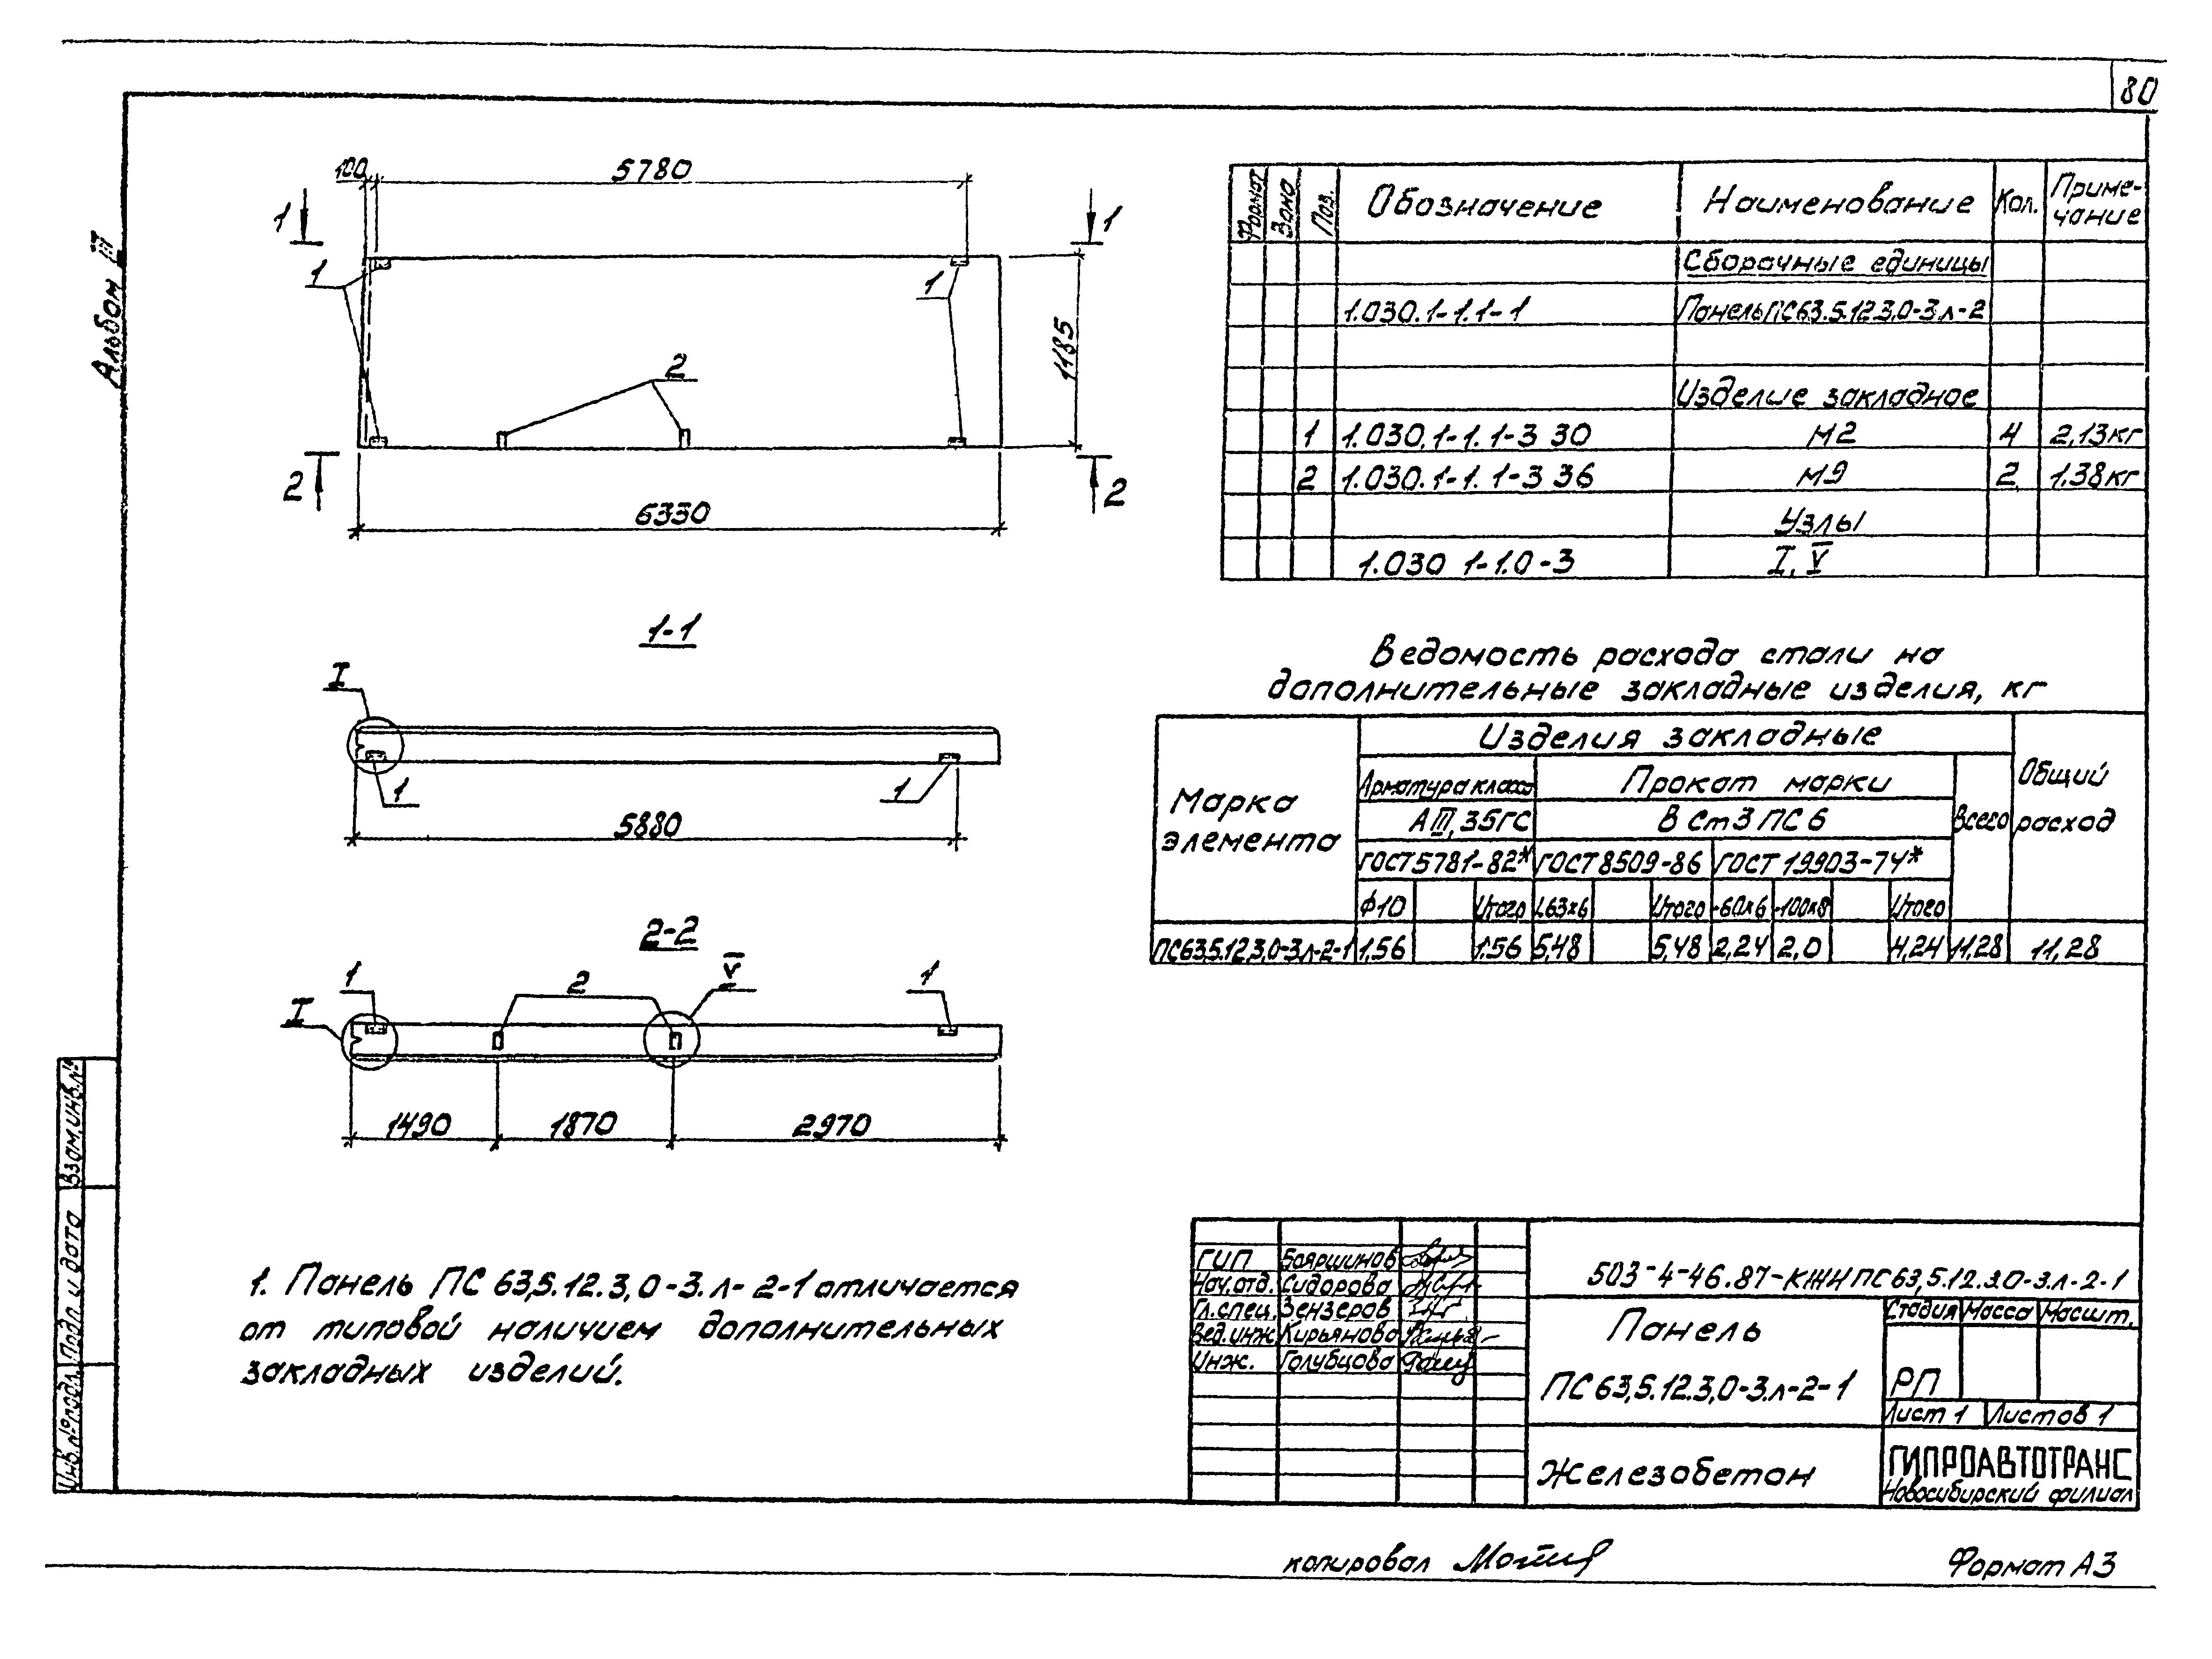 80
Альбом III
100
5780
1
1
1
1
2
1185
2
2
6330
1-1
I
1
1
5880
2-2
I
1
2
V
1
1490
1870
2970
1. Панель ПС 63,5.12.3,0-3.л-2-1 отличается
от типовой наличием дополнительных
закладных изделий.
Формат Зона Поз. Обозначение Наименование Кол. Приме-
чание
Сборочные единицы
1.030.1-1.1-1 Панель ПС63.5.12.3,0-3.л-2
Изделие закладное
1 1.030.1-1.1-3 30 М2 4 2,13кг
2 1.030.1-1.1-3 36 М9 2 1.38кг
Узлы
1.030 1-1.0-3 I, V
Ведомость расхода стали на
дополнительные закладные изделия, кг
Марка
элемента
Изделия закладные
Общий
расход
Арматура класса Прокат марки
Всего
АIII, 35ГС В Ст3 ПС 6
ГОСТ 5781-82* ГОСТ 8509-86 ГОСТ 19903-74*
ф10 Итого L63х6 Итого -60х6 -100х8 Итого
ПС63,5.12.3,0-3.л-2-1 1,56 1.56 5,48 5,48 2,24 2,0 4,24 11,28 11,28
ГИП Бояршинов
Нач.отд. Сидорова
Гл.спец. Зензеров
Вед.инж Кирьянова
Инж. Голубцова
503-4-46.87-КЖИ ПС 63,5.12.3.0-3.л-2-1
Панель
ПС 63,5.12.3,0-3.л-2-1
Стадия Масса Масшт.
РП
Лист 1 Листов 1
Железобетон
ГИПРОАВТОТРАНС
Новосибирский филиал
Взам.инв.№
Подп. и дата
Инв.№подл.
копировал
Формат А3